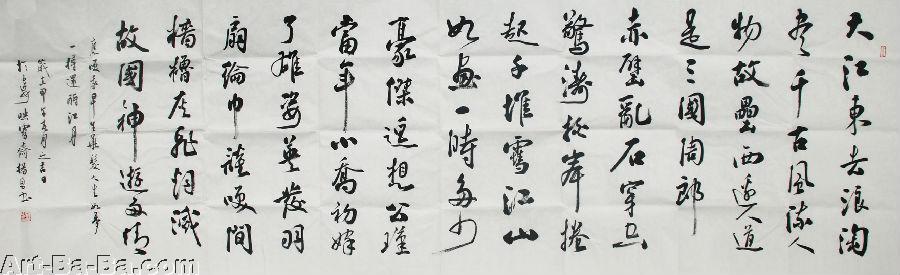 大江東去浪淘
盡千古風流人
物故壘西邊人道
是三國周郎
赤壁亂石穿空
驚濤拍岸捲
起千堆雪江山
如畫一時多少
豪傑遙想公瑾
當年小喬初嫁
了雄姿英發羽
扇綸巾談笑間
檣櫓灰飛烟滅
故國神遊多情
應笑我早生華髮人生如夢
一樽還酹江月
歲在甲月之吉日
於映雪齋楊書
Art-Ba-Ba.com
Art-Ba-Ba.com